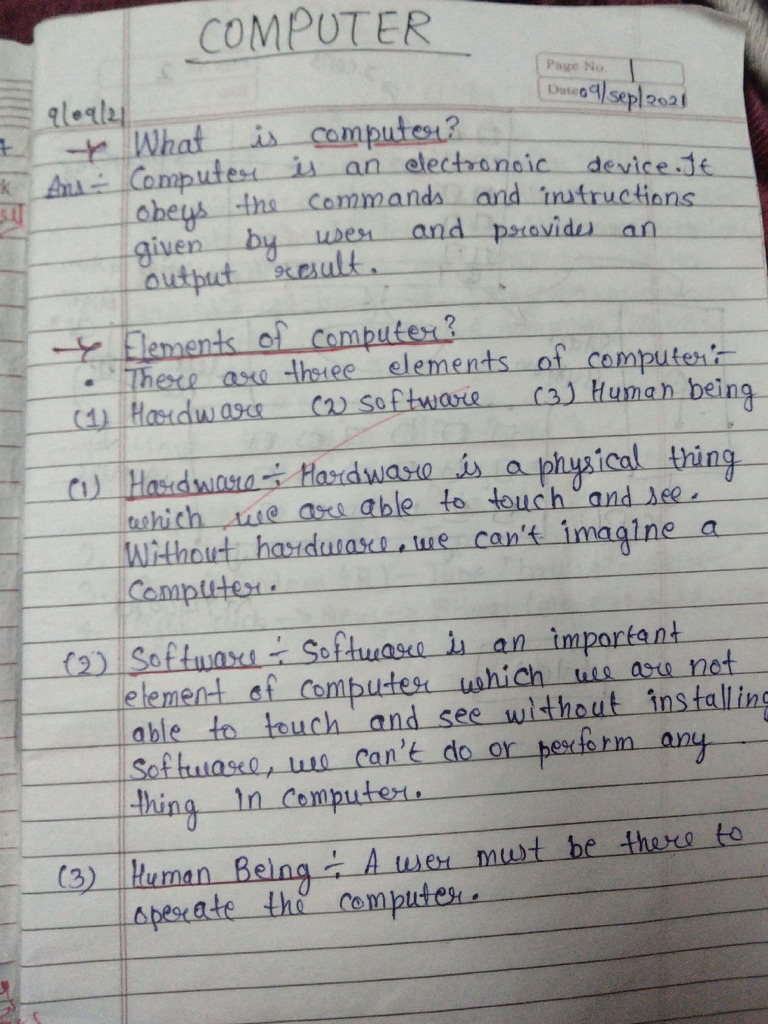 COMPUTER
Page No. 1
Date 09/sep/2021
9/09/21
What is computer?
Ans ÷ Computer is an electronoic device. It
obeys the commands and instructions
given by user and provides an
output result.
Elements of computer?
• There are three elements of computer:-
(1) Hardware (2) software (3) Human being
(1) Hardware ÷ Hardware is a physical thing
which we are able to touch and see.
Without hardware, we can't imagine a
Computer.
(2) Software ÷ Software is an important
element of computer which we are not
able to touch and see without installing
Software, we can't do or perform any
thing in computer.
(3) Human Being ÷ A user must be there to
operate the computer.